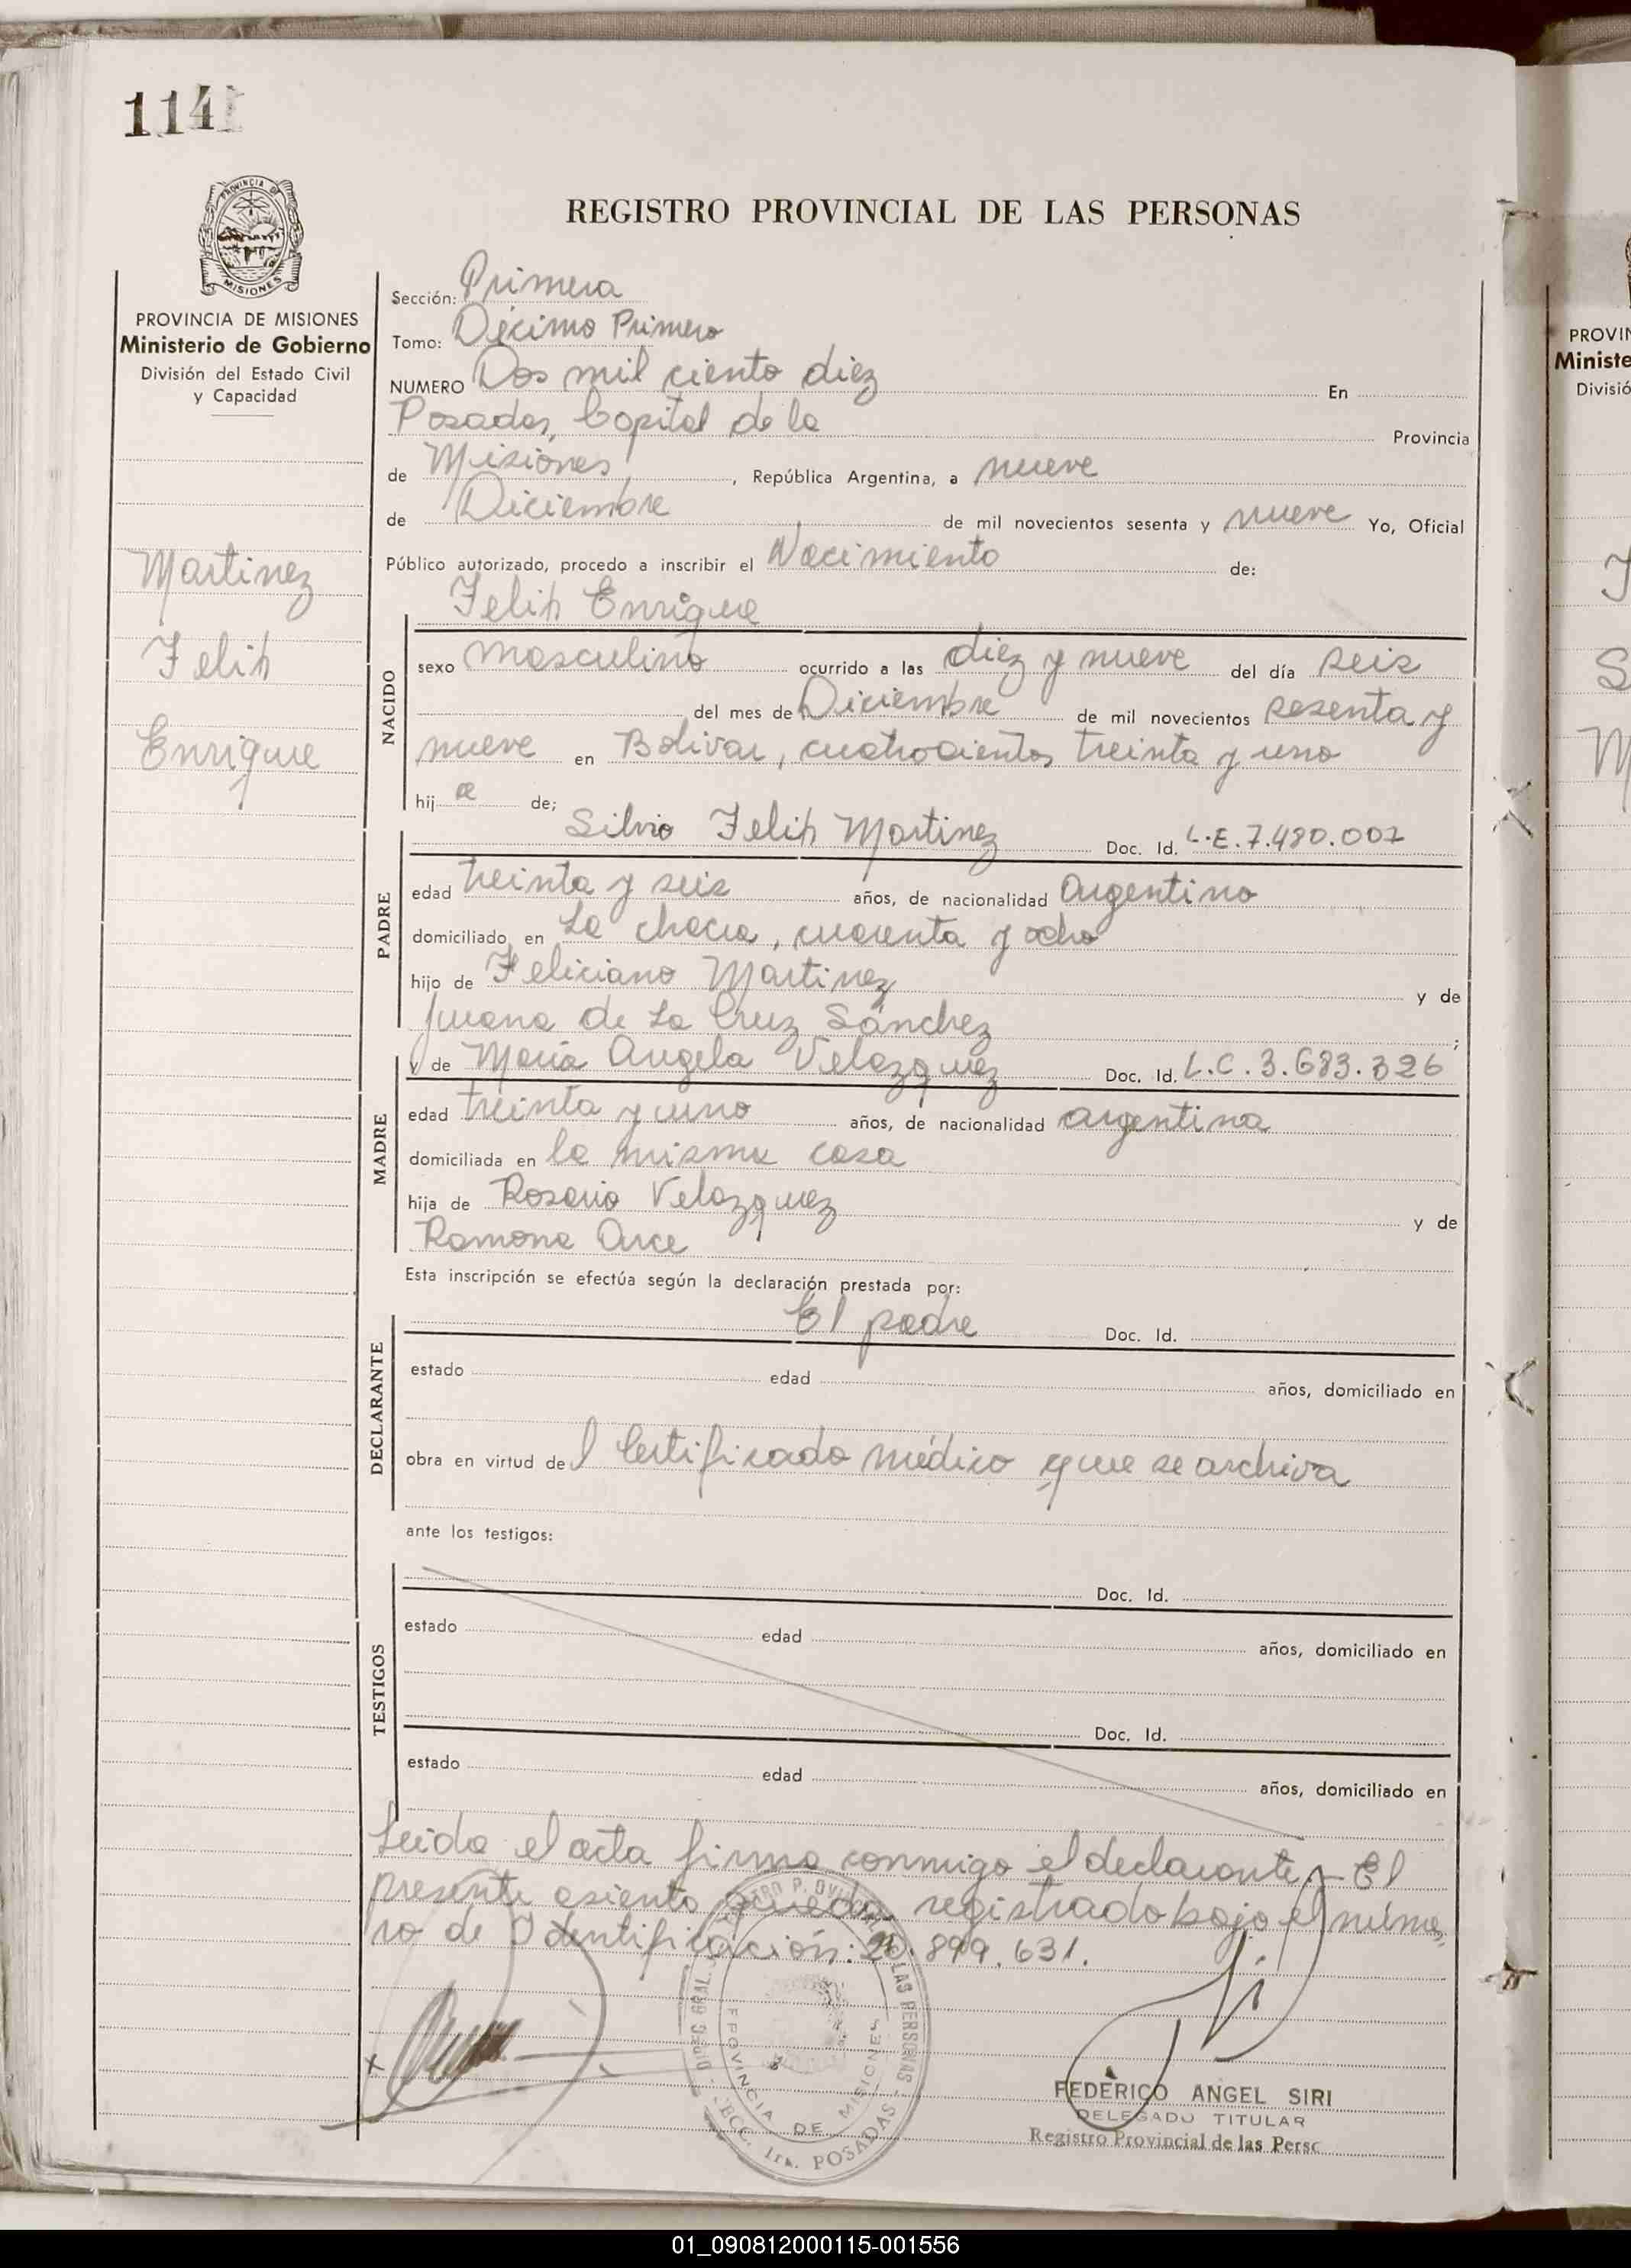 114
PROVINCIA DE
MISIONES
REGISTRO PROVINCIAL DE LAS PERSONAS
PROVINCIA DE MISIONES
Ministerio de Gobierno
División del Estado Civil
y Capacidad
Martinez
Felix
Enrique
Sección: Primera
Tomo: Décimo Primero
NUMERO Dos mil ciento diez En
Posadas, Capital de la Provincia
de Misiones, República Argentina, a nueve
de Diciembre de mil novecientos sesenta y nueve Yo, Oficial
Público autorizado, procedo a inscribir el Nacimiento de:
Felix Enrique
NACIDO
sexo masculino ocurrido a las diez y nueve del día seis
del mes de Diciembre de mil novecientos sesenta y
nueve en Bolivar, cuatrocientos treinta y uno
hij o de;
Silvio Felix Martinez Doc. Id. L.E. 7.480.007
PADRE
edad treinta y seis años, de nacionalidad Argentino
domiciliado en La chacra, cuarenta y ocho
hijo de Feliciano Martinez y de
Juana de La Cruz Sánchez ;
y de María Angela Velazquez Doc. Id. L.C. 3.683.326
MADRE
edad treinta y uno años, de nacionalidad argentina
domiciliada en la misma casa
hija de Rosario Velazquez y de
Ramona Arce
Esta inscripción se efectúa según la declaración prestada por:
El padre Doc. Id.
DECLARANTE
estado edad años, domiciliado en
obra en virtud del Certificado médico que se archiva
ante los testigos:
Doc. Id.
TESTIGOS
estado edad años, domiciliado en
Doc. Id.
estado edad años, domiciliado en
Leida el acta firma conmigo el declarante.- El
presente asiento queda registrado bajo el núme
ro de Identificación: 20.899.631.
LAS PERSONAS
PROVINCIA DE MISIONES
SECC. 1ra. POSADAS
FEDERICO ANGEL SIRI
DELEGADO TITULAR
Registro Provincial de las Persc
PROVIN
Ministe
Divisió
01_090812000115-001556